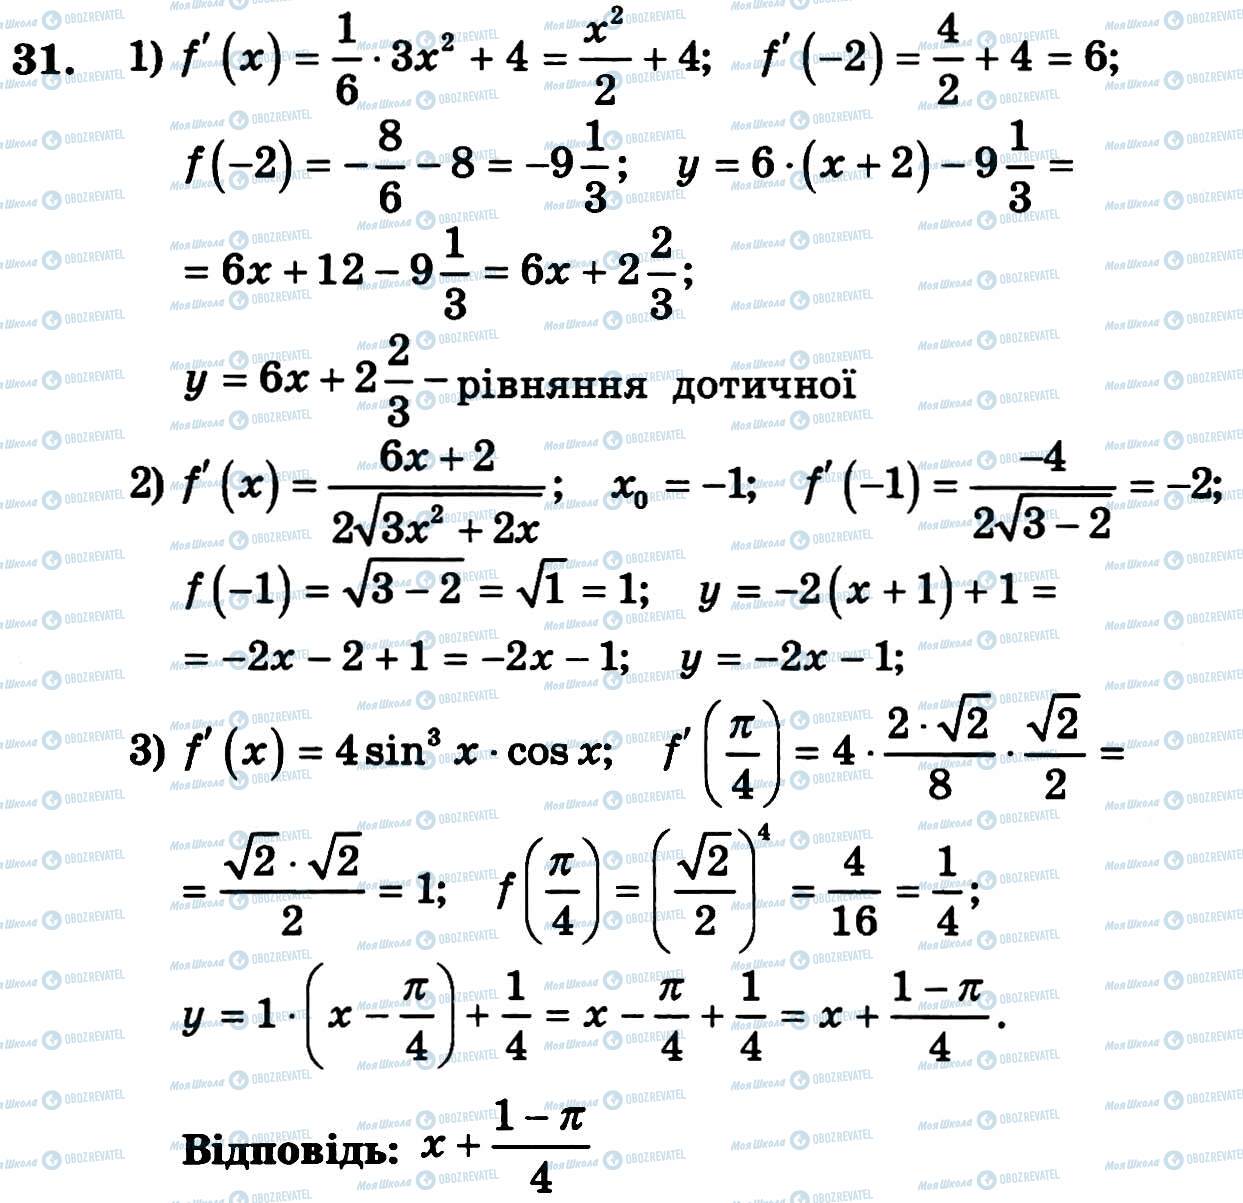 31. 1) f′(x) = 1/6 · 3x² + 4 = x²/2 + 4; f′(−2) = 4/2 + 4 = 6;
f(−2) = −8/6 − 8 = −9 1/3; y = 6 · (x + 2) − 9 1/3 =
= 6x + 12 − 9 1/3 = 6x + 2 2/3;
y = 6x + 2 2/3 − рівняння дотичної
2) f′(x) = (6x + 2)/(2√(3x² + 2x)); x₀ = −1; f′(−1) = −4/(2√(3 − 2)) = −2;
f(−1) = √(3 − 2) = √1 = 1; y = −2(x + 1) + 1 =
= −2x − 2 + 1 = −2x − 1; y = −2x − 1;
3) f′(x) = 4 sin³ x · cos x; f′(π/4) = 4 · (2 · √2)/8 · √2/2 =
= (√2 · √2)/2 = 1; f(π/4) = (√2/2)⁴ = 4/16 = 1/4;
y = 1 · (x − π/4) + 1/4 = x − π/4 + 1/4 = x + (1 − π)/4.
Відповідь: x + (1 − π)/4
МояШкола OBOZREVATEL